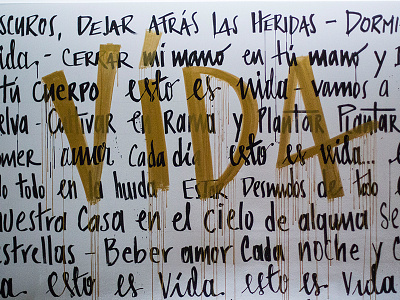 SCUROS, DEJAR ATRÁS LAS HERIDAS - DORMI
vida - CERRAR mi mano en tú mano y
tú cuerpo esto es vida - vamos a
elva - Cultivar en Rama y Plantar Plantar
omer amor Cada día esto es vida...
do todo en la huida ESTAR Desnudos de todo
nuestra Casa en el cielo de alguna Se
estrellas - Beber amor Cada noche y C
a esto es vida esto es Vida
VIDA